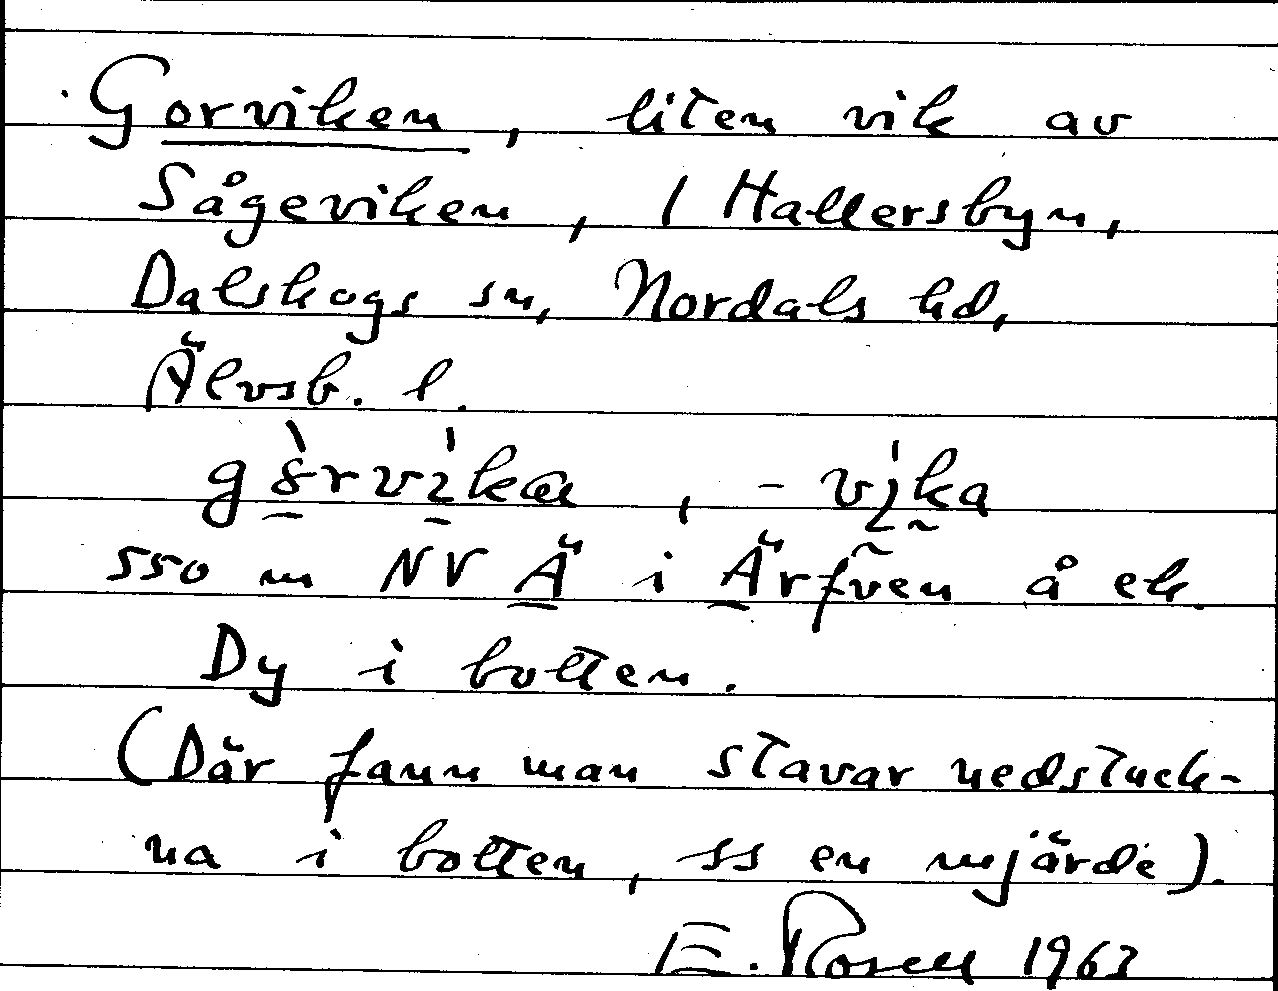 Gorviken, liten vik av
Sågeviken, 1 Hallersbyn,
Dalskogs sn, Nordals hd,
Älvsb. l.
sso m NV Ä i Ärfven å ek.
Dy i botten.
(Där fann man stavar nedstuck-
na i botten, ss en mjärde).
E. Rosell 1963